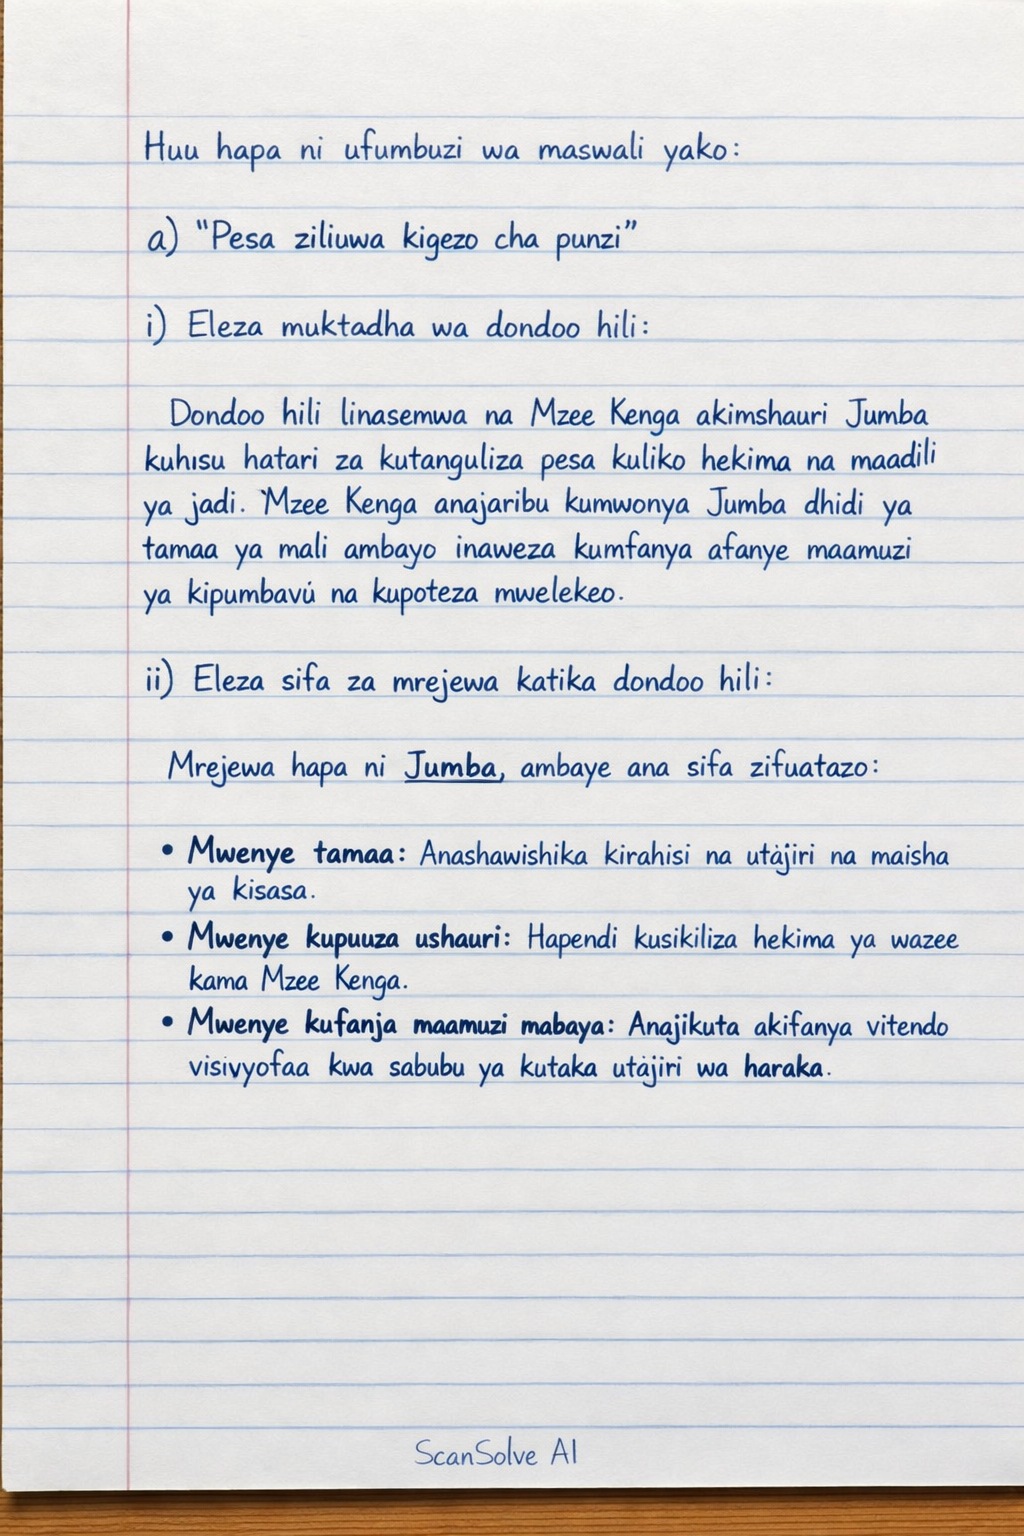 Huu hapa ni ufumbuzi wa maswali yako:
a) "Pesa ziliuwa kigezo cha punzi"
i) Eleza muktadha wa dondoo hili:
Dondoo hili linasemwa na Mzee Kenga akimshauri Jumba
kuhisu hatari za kutanguliza pesa kuliko hekima na maadili
ya jadi. Mzee Kenga anajaribu kumwonya Jumba dhidi ya
tamaa ya mali ambayo inaweza kumfanya afanye maamuzi
ya kipumbavú na kupoteza mwelekeo.
ii) Eleza sifa za mrejewa katika dondoo hili:
Mrejewa hapa ni Jumba, ambaye ana sifa zifuatazo:
• Mwenye tamaa: Anashawishika kirahisi na utajiri na maisha
ya kisasa.
• Mwenye kupuuza ushauri: Hapendi kusikiliza hekima ya wazee
kama Mzee Kenga.
• Mwenye kufanja maamuzi mabaya: Anajikuta akifanya vitendo
visivyofaa kwa sabubu ya kutaka utajiri wa haraka.
ScanSolve AI